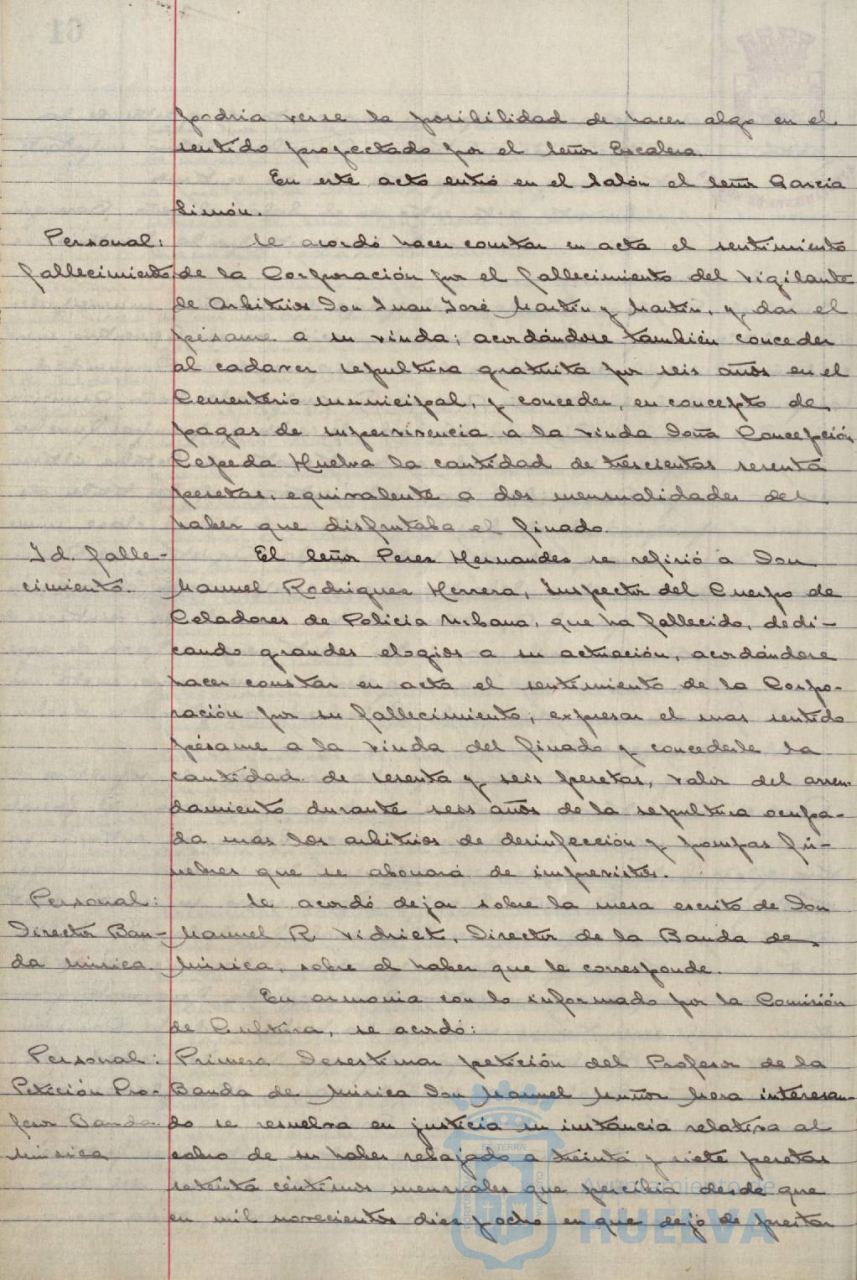 podria verse la posibilidad de hacer algo en el
sentido proyectado por el señor Escalera.
En este acto entró en el salón el señor García
Simón.
Personal: Se acordó hacer constar en acta el sentimiento
fallecimiento de la Corporación por el fallecimiento del vigilante
de Arbitrios Don Juan José Martín y Martín, y dar el
pésame a su viuda; acordándose también conceder
al cadaver sepultura gratuita por seis años en el
Cementerio municipal, y conceder, en concepto de
pagas de supervivencia a la viuda Doña Concepción
Cepeda Huelva la cantidad de trescientas sesenta
pesetas, equivalente a dos mensualidades del
haber que disfrutaba el finado.
Id. falle- El señor Perez Hernandez se refirió a Don
cimiento. Manuel Rodriguez Herrera, Inspector del Cuerpo de
Celadores de Policía Urbana, que ha fallecido, dedi-
cando grandes elogios a su actuación, acordándose
hacer constar en acta el sentimiento de la Corpo-
ración por su fallecimiento, expresar el mas sentido
pésame a la viuda del finado y concederle la
cantidad de sesenta y seis pesetas, valor del arren-
damiento durante seis años de la sepultura ocupa-
da mas los arbitrios de desinfección y pompas fú-
nebres que se abonará de imprevistos.
Personal: Se acordó dejar sobre la mesa escrito de Don
Director Ban- Manuel R. Director de la Banda de
da Música. Música, sobre el haber que le corresponde.
En armonia con lo informado por la Comisión
de Cultura, se acordó:
Personal: Primero. Desestimar petición del Profesor de la
Petición Pro- Banda de Música Don Manuel Muñoz Mora interesan-
fesor Banda do se resuelva en justicia su instancia relativa al
Música cobro de su haber rebajado a treinta y siete pesetas
setenta céntimos mensuales que percibia desde que
en mil novecientos diez y ocho en que dejó de prestar
Ayuntamiento de
HUELVA
61